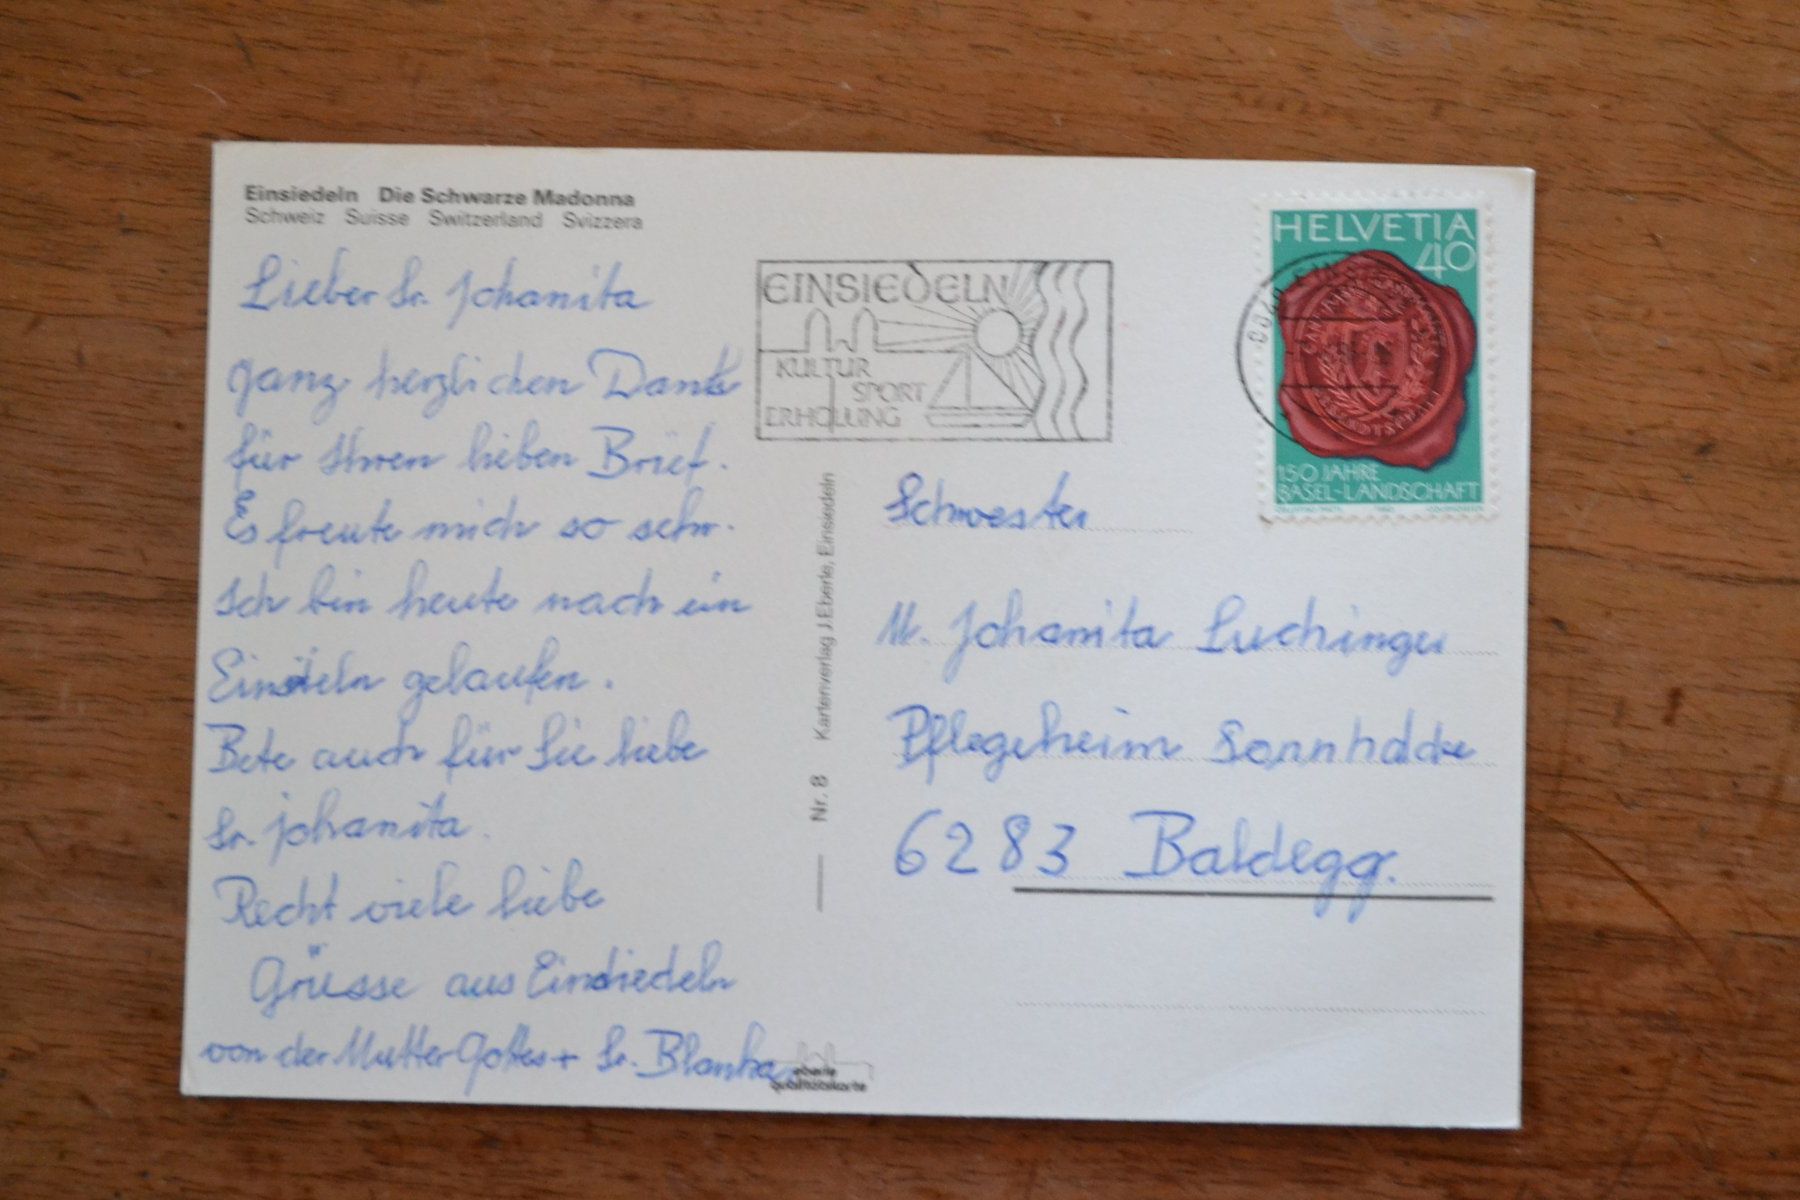 Einsiedeln Die Schwarze Madonna
Schweiz Suisse Switzerland Svizzera
Lieber Sr. Johanita
Ganz herzlichen Dank
für Ihren lieben Brief.
Es freute mich so sehr.
Ich bin heute nach ein
gelaufen.
Bete auch für Sie liebe
Sr. Johanita.
Recht viele liebe
Grüsse aus Einsiedeln
von der Mutter Gottes + Sr. Blanka
eberle
qualitätskarte
Nr. 8 Kartenverlag J. Eberle, Einsiedeln
EINSIEDELN
KULTUR
SPORT
ERHOLUNG
HELVETIA
40
150 JAHRE
BASEL-LANDSCHAFT
Schwester
M. Johanita Luchinger
Pflegeheim Sonnhalde
6283 Baldegg.